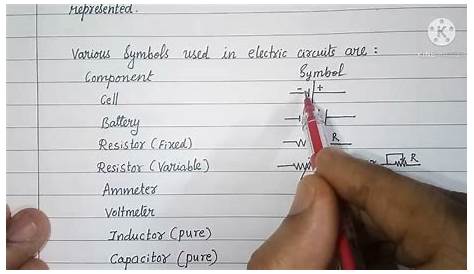 represented.
Various Symbols used in electric circuits are :
Component Symbol
Cell - +
Battery
Resistor (Fixed) R
Resistor (Variable) R
Ammeter
Voltmeter
Inductor (pure)
Capacitor (pure)